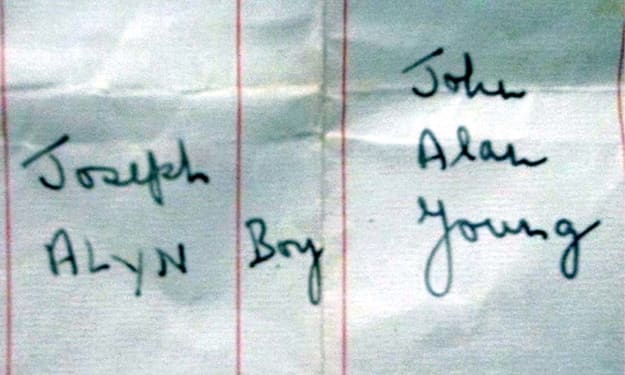 Joseph
ALYN
Boy
John
Alan
Young